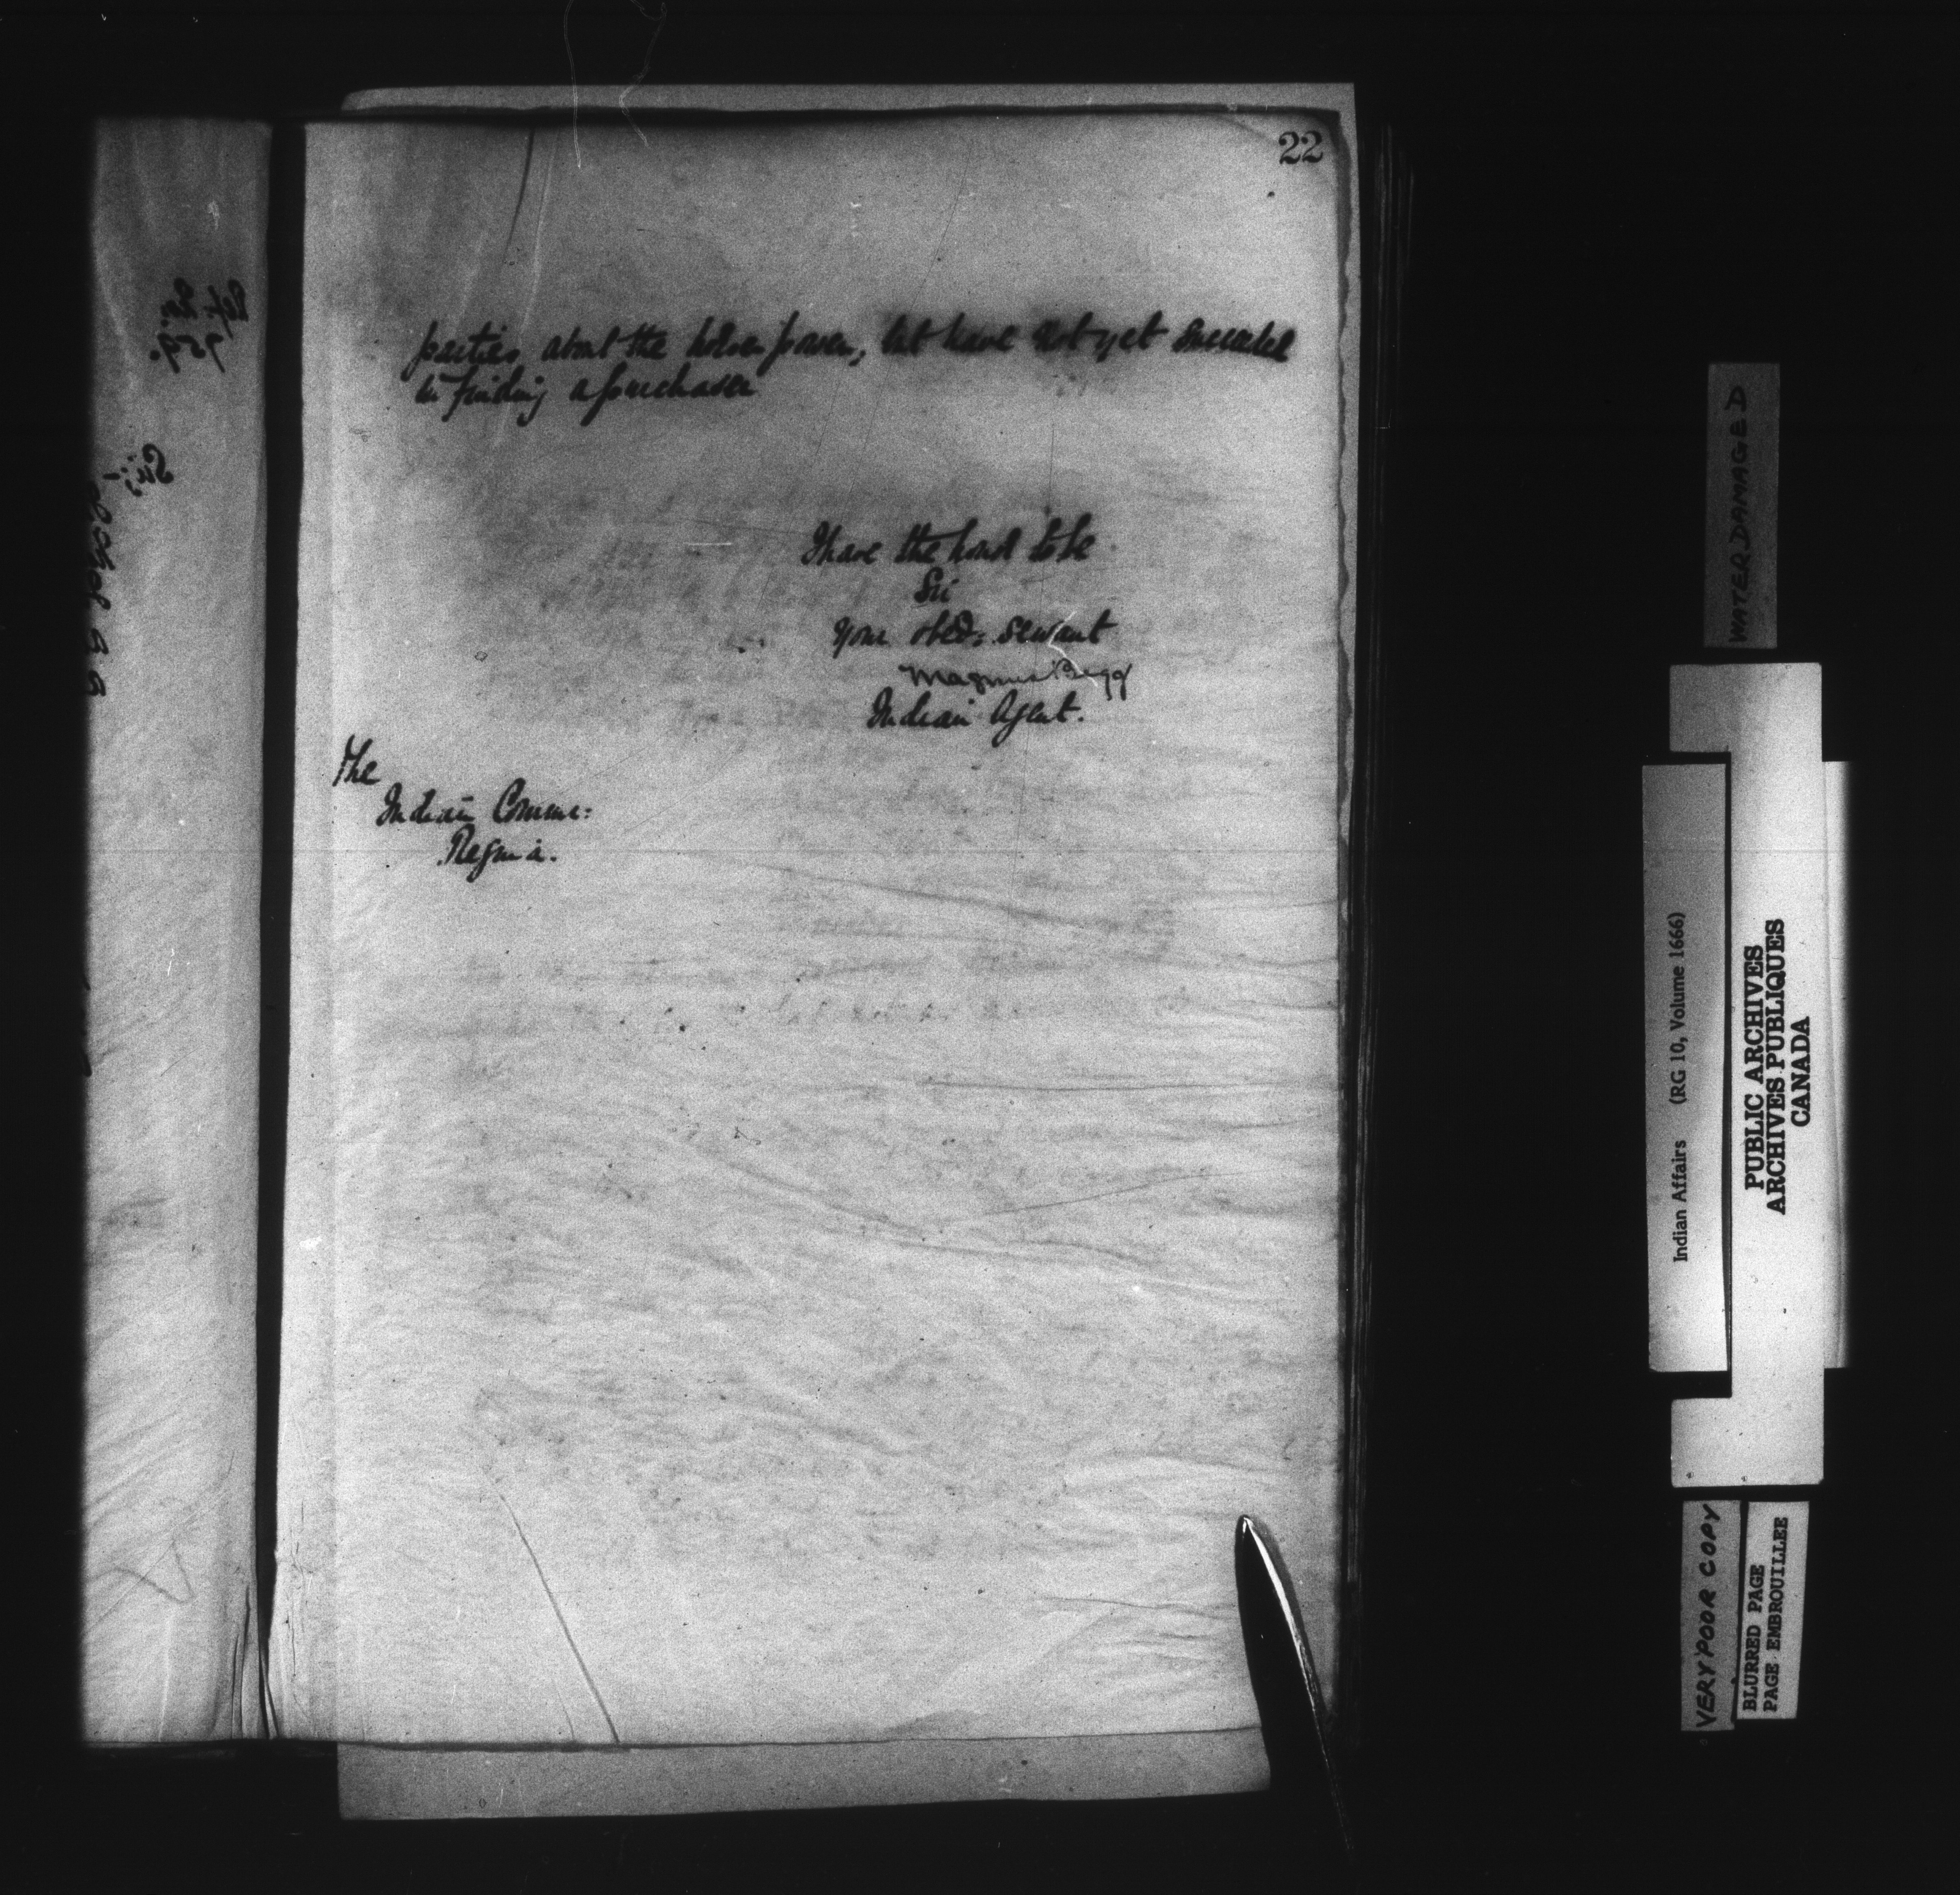 22
parties about the horse power, but have not yet succeeded
in finding a purchaser
I have the honor to be
Sir
Your obed: servant
Magnus Begg
Indian Agent.
The
Indian Commr:
Regina.
Sir,
WATER DAMAGED
Indian Affairs (RG 10, Volume 1666)
PUBLIC ARCHIVES
ARCHIVES PUBLIQUES
CANADA
VERY POOR COPY
BLURRED PAGE
PAGE EMBROUILLEE